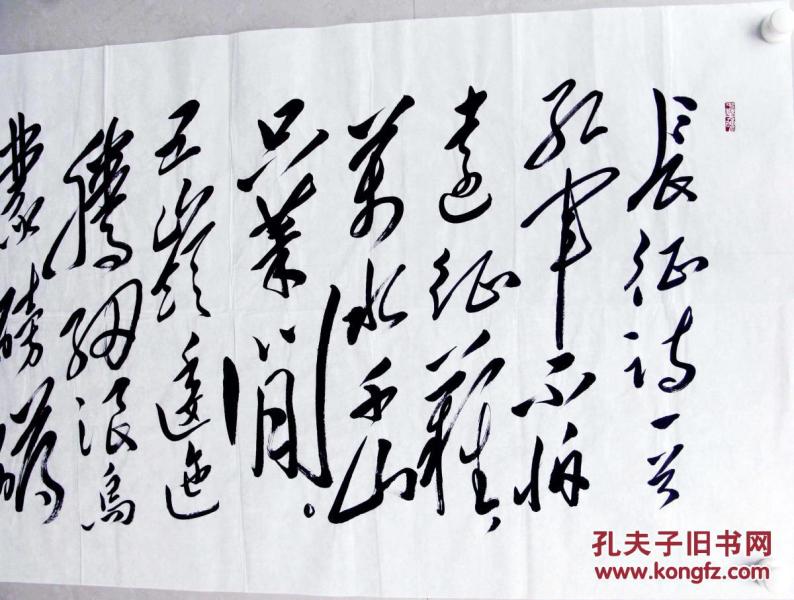 長征诗一首
红军不怕
遠征難,
萬水千山
只等閒。
五嶺逶迤
騰細浪烏
蒙磅礴
孔夫子旧书网
www.kongfz.com